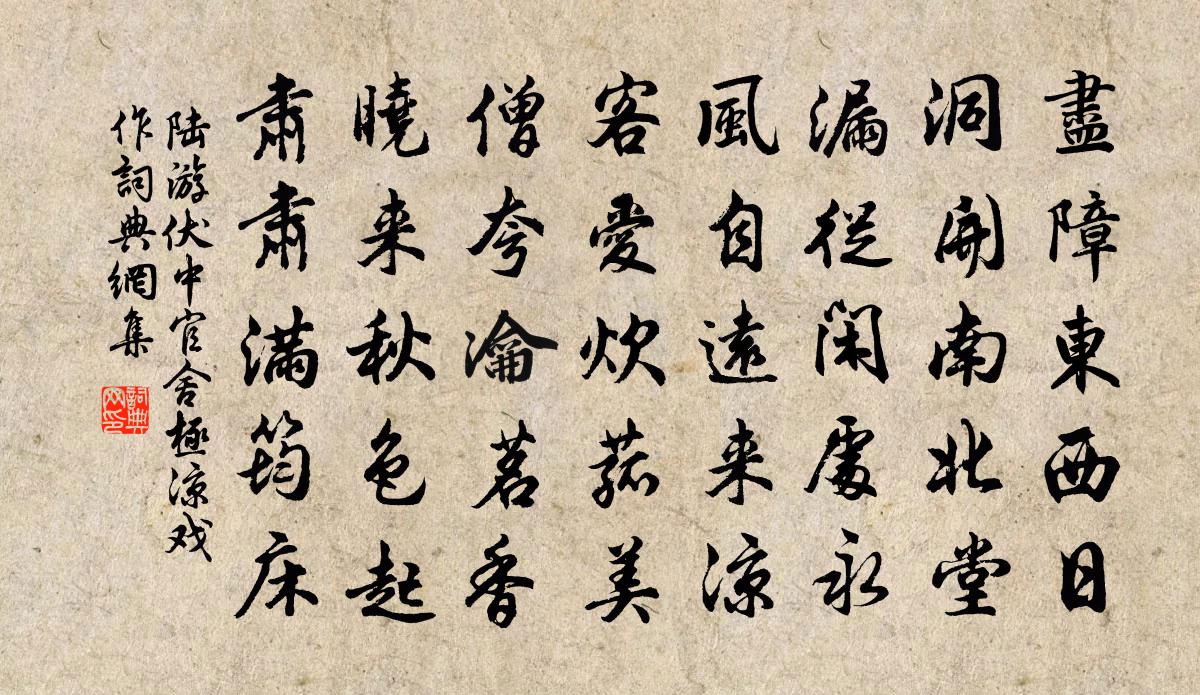 盡障東西日
洞開南北堂
漏從閑處永
風自遠来涼
客愛炊菰美
僧夸瀹茗香
曉来秋色起
肅肅满筠床
陆游伏中官舍極涼戏
作詞典網集
詞典网印